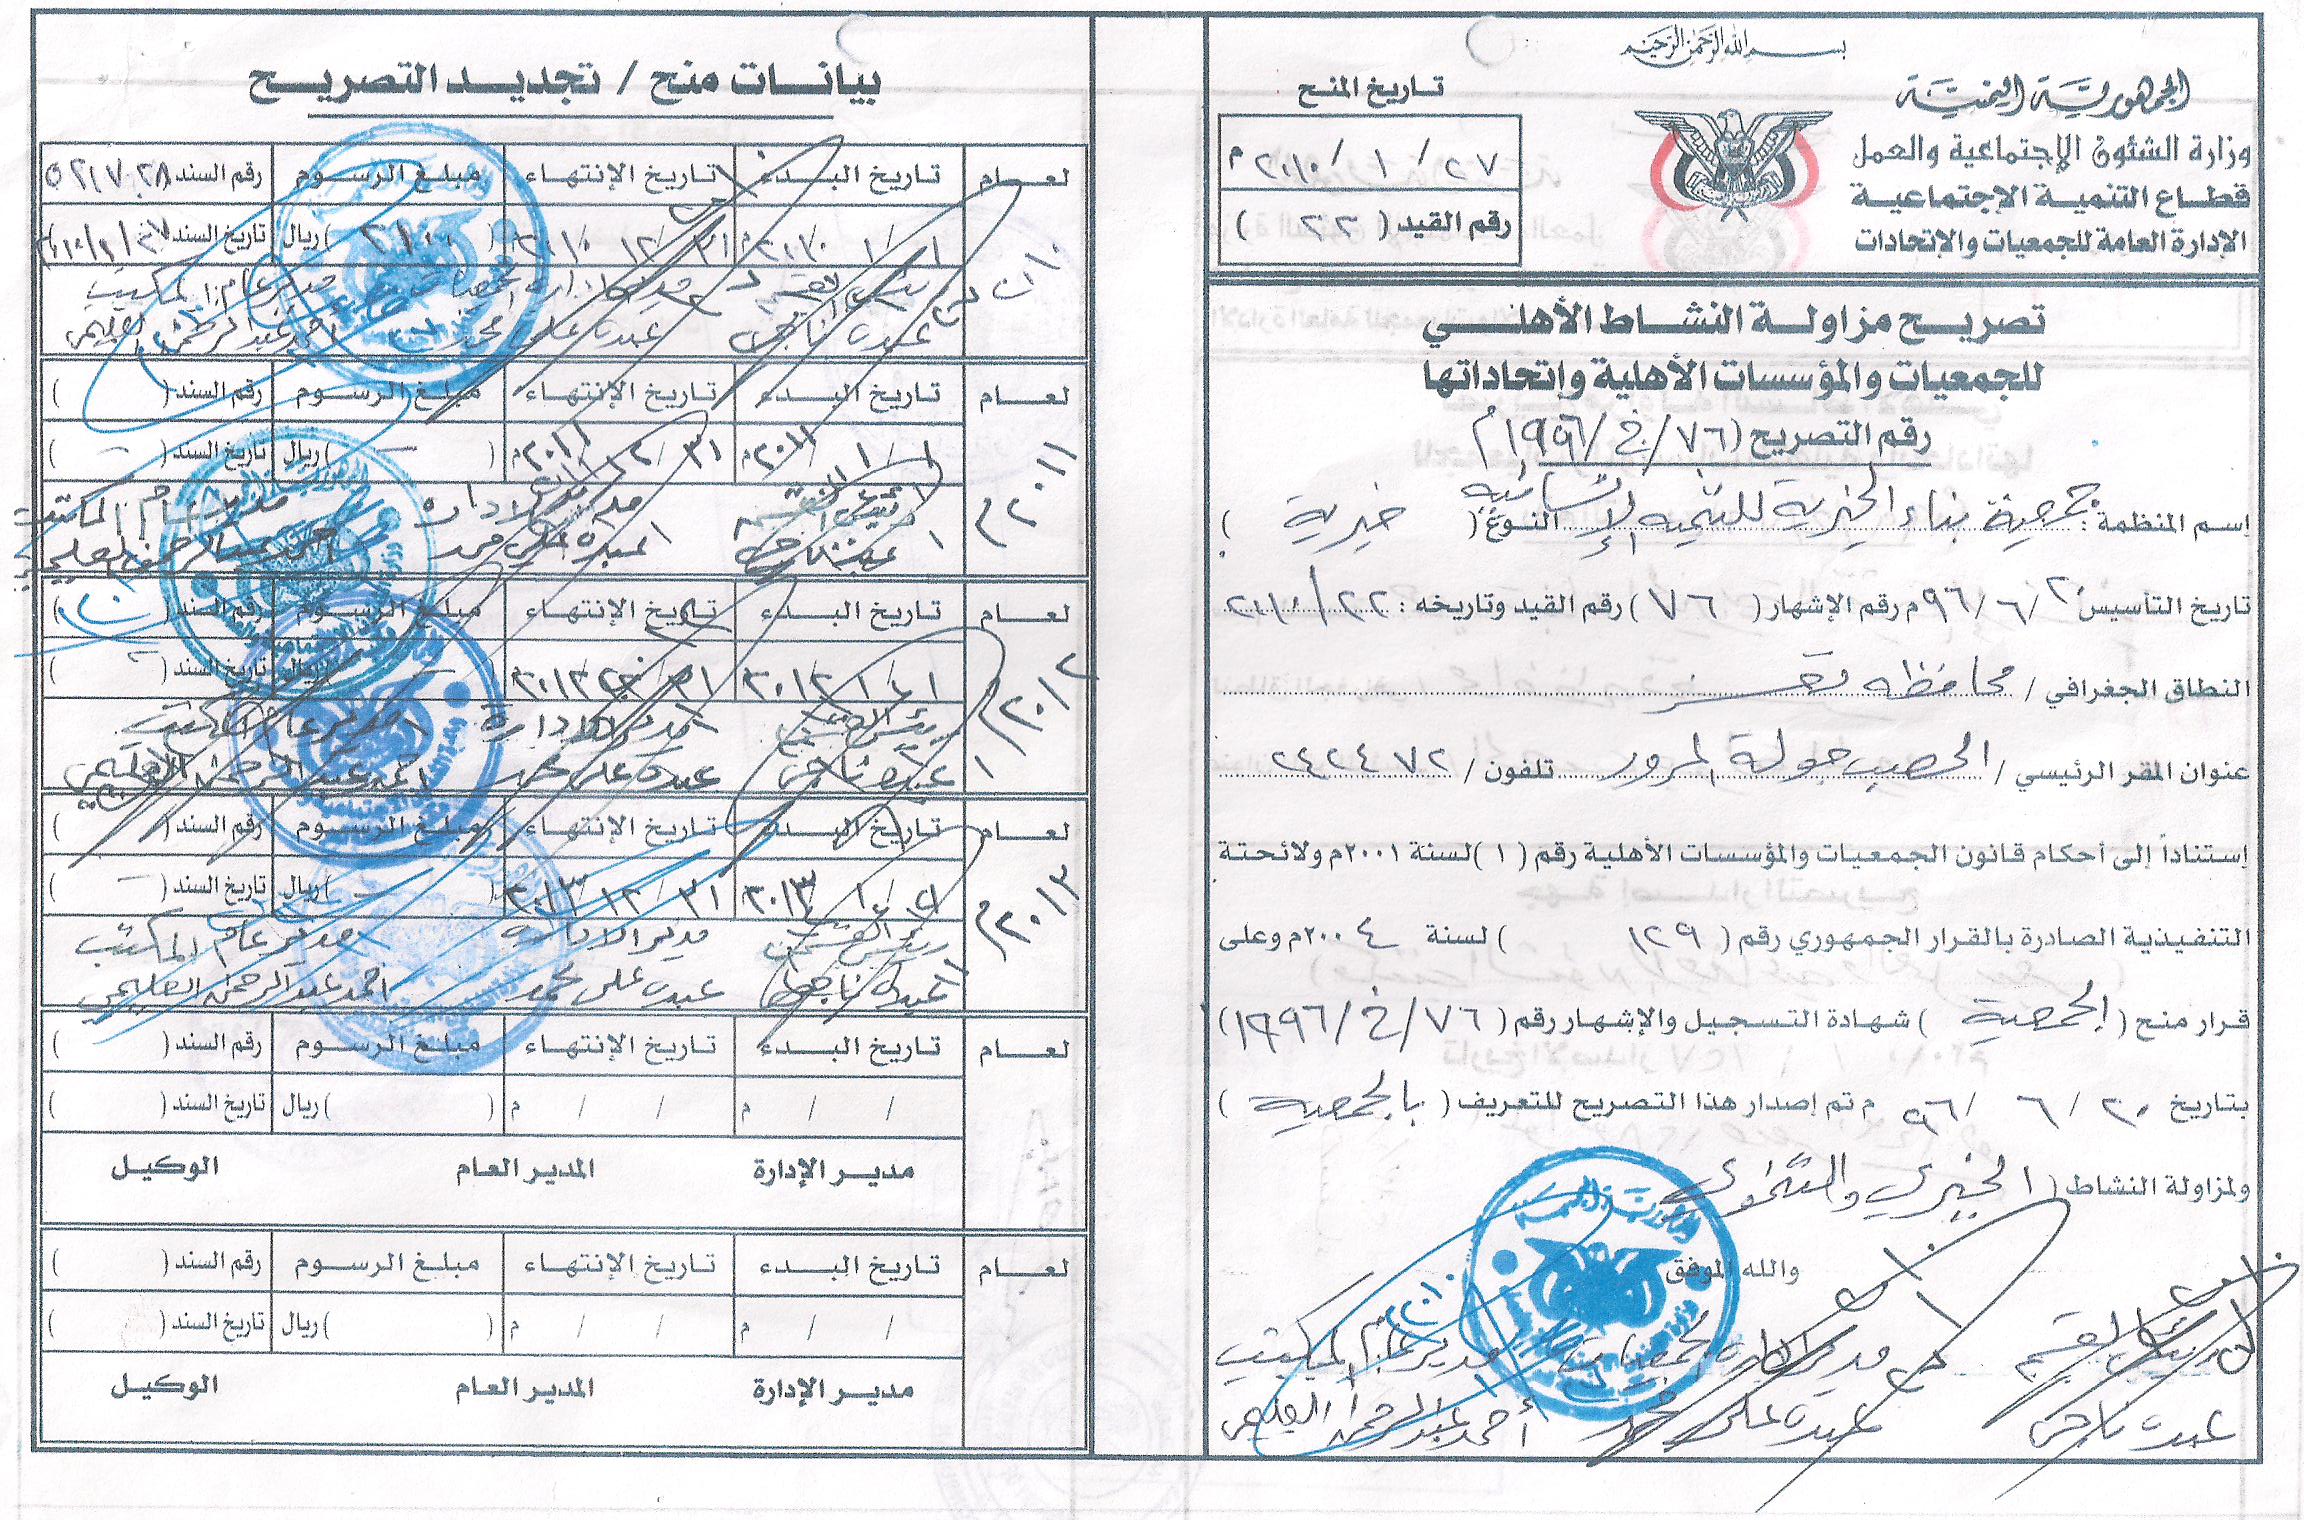 بسم الله الرحمن الرحيم
الجمهورية اليمنية
وزارة الشئون الإجتماعية والعمل
قطاع التنمية الإجتماعية
الإدارة العامة للجمعيات والإتحادات
تاريخ المنح
٢٧ / ١ / ٢٠١٠ م
رقم القيد ( ٢٢ )
تصريح مزاولة النشاط الأهلي
للجمعيات والمؤسسات الأهلية وإتحاداتها
رقم التصريح (٧٦/خ/١٩٩٦)م
إسم المنظمة: جمعية بناء الخيرية للتنميه الإنسانيه النوع ( خيرية )
تاريخ التأسيس ٢٠/٦/٩٦م رقم الإشهار ( ٧٦ ) رقم القيد وتاريخه : ٢٢/٢٠١٠
النطاق الجغرافي / محافظه تعز
عنوان المقر الرئيسي / الحصب جولة المرور تلفون / ٢٤٢٤٧٢
إستناداً إلى أحكام قانون الجمعيات والمؤسسات الأهلية رقم ( ١ ) لسنة ٢٠٠١م ولائحتة
التنفيذية الصادرة بالقرار الجمهوري رقم ( ١٢٩ ) لسنة ٢٠٠٤م وعلى
قرار منح ( الجمعية ) شهادة التسجيل والإشهار رقم ( ٧٦/خ/١٩٩٦ )
بتاريخ ٢٠ / ٦ / ٩٦ م تم إصدار هذا التصريح للتعريف ( بالجمعية )
ولمزاولة النشاط ( الخيري والتنموي
والله الموفق
رئيس القسم مدير إدارة الجمعيات مدير عام المكتب
عبده ناجي عبده علي محمد أحمد عبدالرحمن العليمي
بيانات منح / تجديد التصريح
لعام تاريخ البدء تاريخ الإنتهاء مبلغ الرسوم رقم السند
٢٠١٠ ١ / ١ / ٢٠١٠م ٣١ / ١٢ / ٢٠١٠م ( ٢١٠٠ ) ريال تاريخ السند
رئيس القسم مدير إدارة الجمعيات مدير عام المكتب
عبده ناجي عبده علي محمد أحمد عبدالرحمن العليمي
لعام تاريخ البدء تاريخ الإنتهاء مبلغ الرسوم رقم السند ( )
٢٠١١م ١ / ١ / ٢٠١١م ٣١ / ١٢ / ٢٠١١م ( — ) ريال تاريخ السند ( - )
رئيس القسم مدير الاداره مدير عام المكتب
عبده ناجي عبده علي محمد أحمد عبدالرحمن العليمي
لعام تاريخ البدء تاريخ الإنتهاء مبلغ الرسوم رقم السند ( )
٢٠١٢م ١ / ١ / ٢٠١٢ ٣١ / ١٢ / ٢٠١٢ ( — ) ريال تاريخ السند ( - )
رئيس القسم مدير الادارة مدير عام المكتب
عبده ناجي عبده علي محمد أحمد عبدالرحمن العليمي
لعام تاريخ البدء تاريخ الإنتهاء مبلغ الرسوم رقم السند ( )
٢٠١٣م ١ / ١ / ٢٠١٣ ٣١ / ١٢ / ٢٠١٣ ( — ) ريال تاريخ السند ( - )
رئيس القسم مدير الاداره مدير عام المكتب
عبده ناجي عبده علي محمد أحمد عبدالرحمن العليمي
لعام تاريخ البدء تاريخ الإنتهاء مبلغ الرسوم رقم السند ( )
/ / م / / م ( ) ريال تاريخ السند ( )
مدير الإدارة المدير العام الوكيل
لعام تاريخ البدء تاريخ الإنتهاء مبلغ الرسوم رقم السند ( )
/ / م / / م ( ) ريال تاريخ السند ( )
مدير الإدارة المدير العام الوكيل